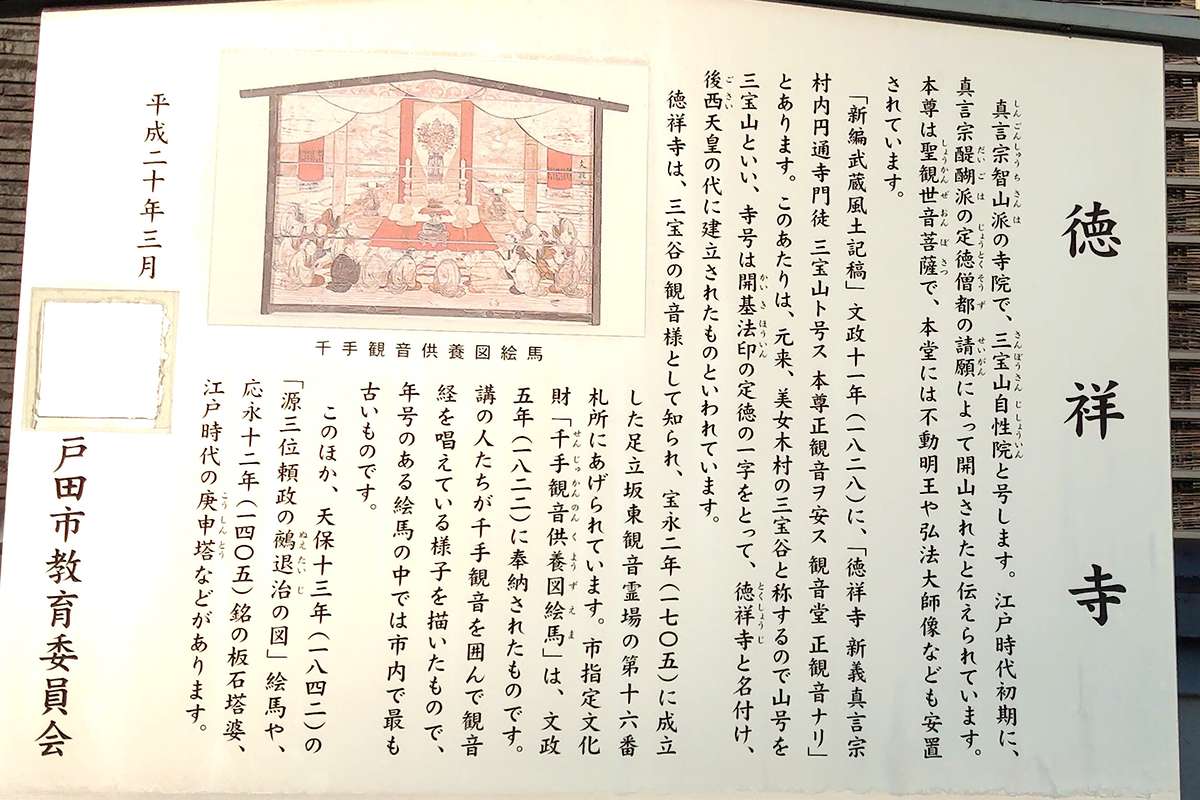 徳祥寺
真言宗智山派の寺院で、三宝山自性院と号します。江戸時代初期に、
真言宗醍醐派の定徳僧都の請願によって開山されたと伝えられています。
本尊は聖観世音菩薩で、本堂には不動明王や弘法大師像なども安置
されています。
「新編武蔵風土記稿」文政十一年(一八二八)に、「徳祥寺 新義真言宗
村内円通寺門徒 三宝山ト号ス 本尊正観音ヲ安ス 観音堂 正観音ナリ」
とあります。このあたりは、元来、美女木村の三宝谷と称するので山号を
三宝山といい、寺号は開基法印の定徳の一字をとって、徳祥寺と名付け、
後西天皇の代に建立されたものといわれています。
徳祥寺は、三宝谷の観音様として知られ、宝永二年(一七〇五)に成立
した足立坂東観音霊場の第十六番
札所にあげられています。市指定文化
財「千手観音供養図絵馬」は、文政
五年(一八二二)に奉納されたものです。
講の人たちが千手観音を囲んで観音
経を唱えている様子を描いたもので、
年号のある絵馬の中では市内で最も
古いものです。
このほか、天保十三年(一八四二)の
「源三位頼政の鵺退治の図」絵馬や、
応永十二年(一四〇五)銘の板石塔婆、
江戸時代の庚申塔などがあります。
千手観音供養図絵馬
平成二十年三月
戸田市教育委員会